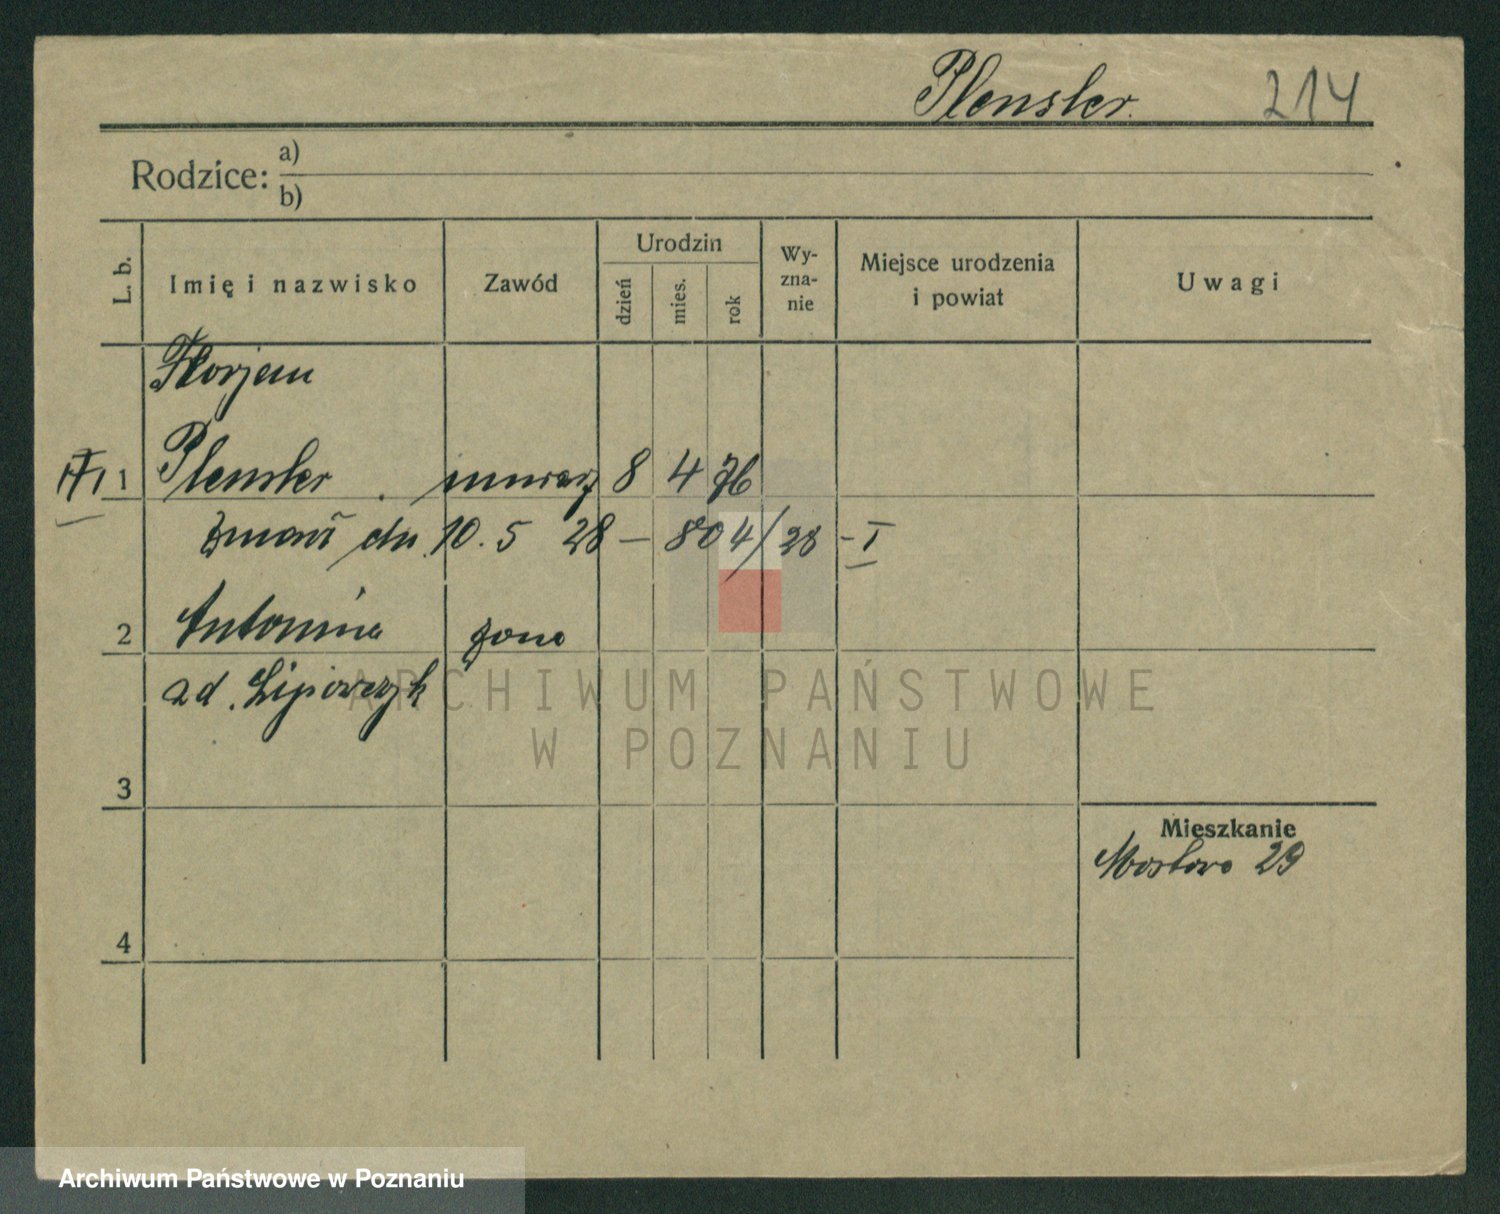 Plensler. 214
Rodzice: a)
b)
L. b.
Imię i nazwisko
Zawód
Urodzin
dzień
mies.
rok
Wy-
zna-
nie
Miejsce urodzenia
i powiat
Uwagi
Florjan
1 Plensler murarz 8 4 76
Zmarł dn. 10. 5 28 — 804/28 - I
2 Antonina żona
ad. Lipiowczyk
3
4
Mieszkanie
Mostowa 29
ARCHIWUM PAŃSTWOWE
W POZNANIU
Archiwum Państwowe w Poznaniu